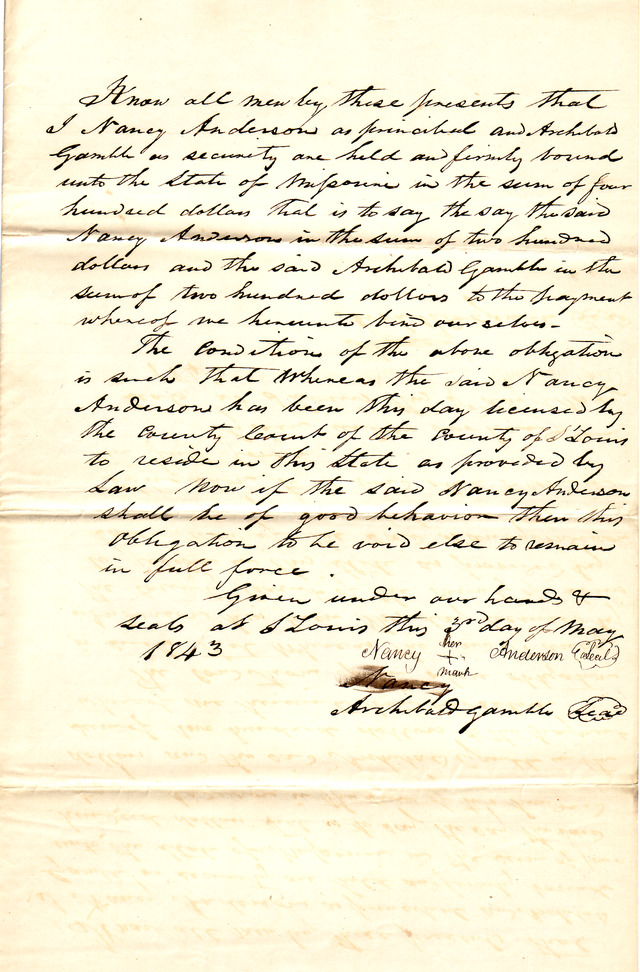 Know all men by these presents that
I Nancy Anderson as principal and Archibald
Gamble as security are held and firmly bound
unto the State of Missourie in the sum of four
hundred dollars that is to say the say the said
Nancy Anderson in the sum of two hundred
dollars and the said Archibald Gamble in the
sum of two hundred dollars to the payment
whereof we hereunto bind our selves-
The Condition of the above obligation
is such that Whereas the said Nancy
Anderson has been this day licensed by
the County Court of the County of St Louis
to reside in this State as provided by
Law Now if the said Nancy Anderson
shall be of good behavior then this
Obligation to be void else to remain
in full force.
Given under our hands &
seals at St Louis this 3rd day of May
1843
Nancy her + mark Anderson (Seal)
Nancy
Archibald Gamble (Seal)